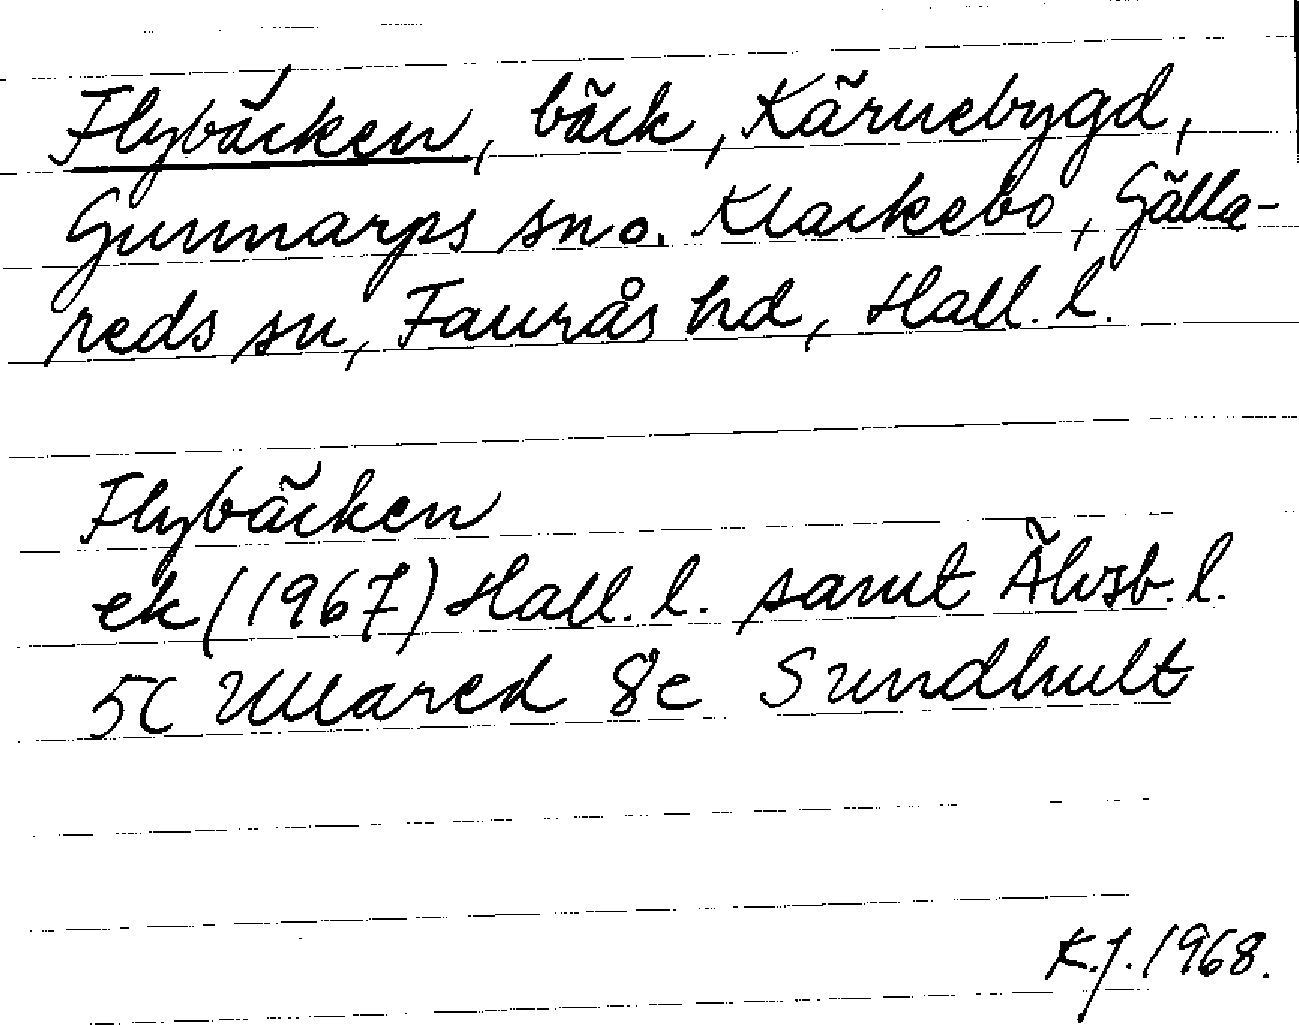 Flybäcken, bäck, Kärnebygd,
Gunnarps sn o. Klackebo, Gälla-
reds sn, Faurås hd, Hall. l.
Flybäcken
ek (1967) Hall. l. samt Älvsb. l.
5c Ullared 8c Sundhult
K.J. 1968.